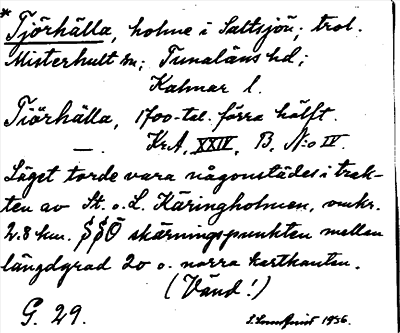 * Tjörhälla, holme i Saltsjön; trol.
Misterhult sn; Tunaläns hd;
Kalmar l.
Tiörhälla, 1700-tal. förra hälft.
—. KrA, XXIV, B, N:o IV.
Läget torde vara någonstädes i trak-
ten av St. o. L. Käringholmen, omkr.
2.8 km. SSÖ skärningspunkten mellan
längdgrad 20 o. norra kartkanten.
(Vänd!)
G. 29. 1936.